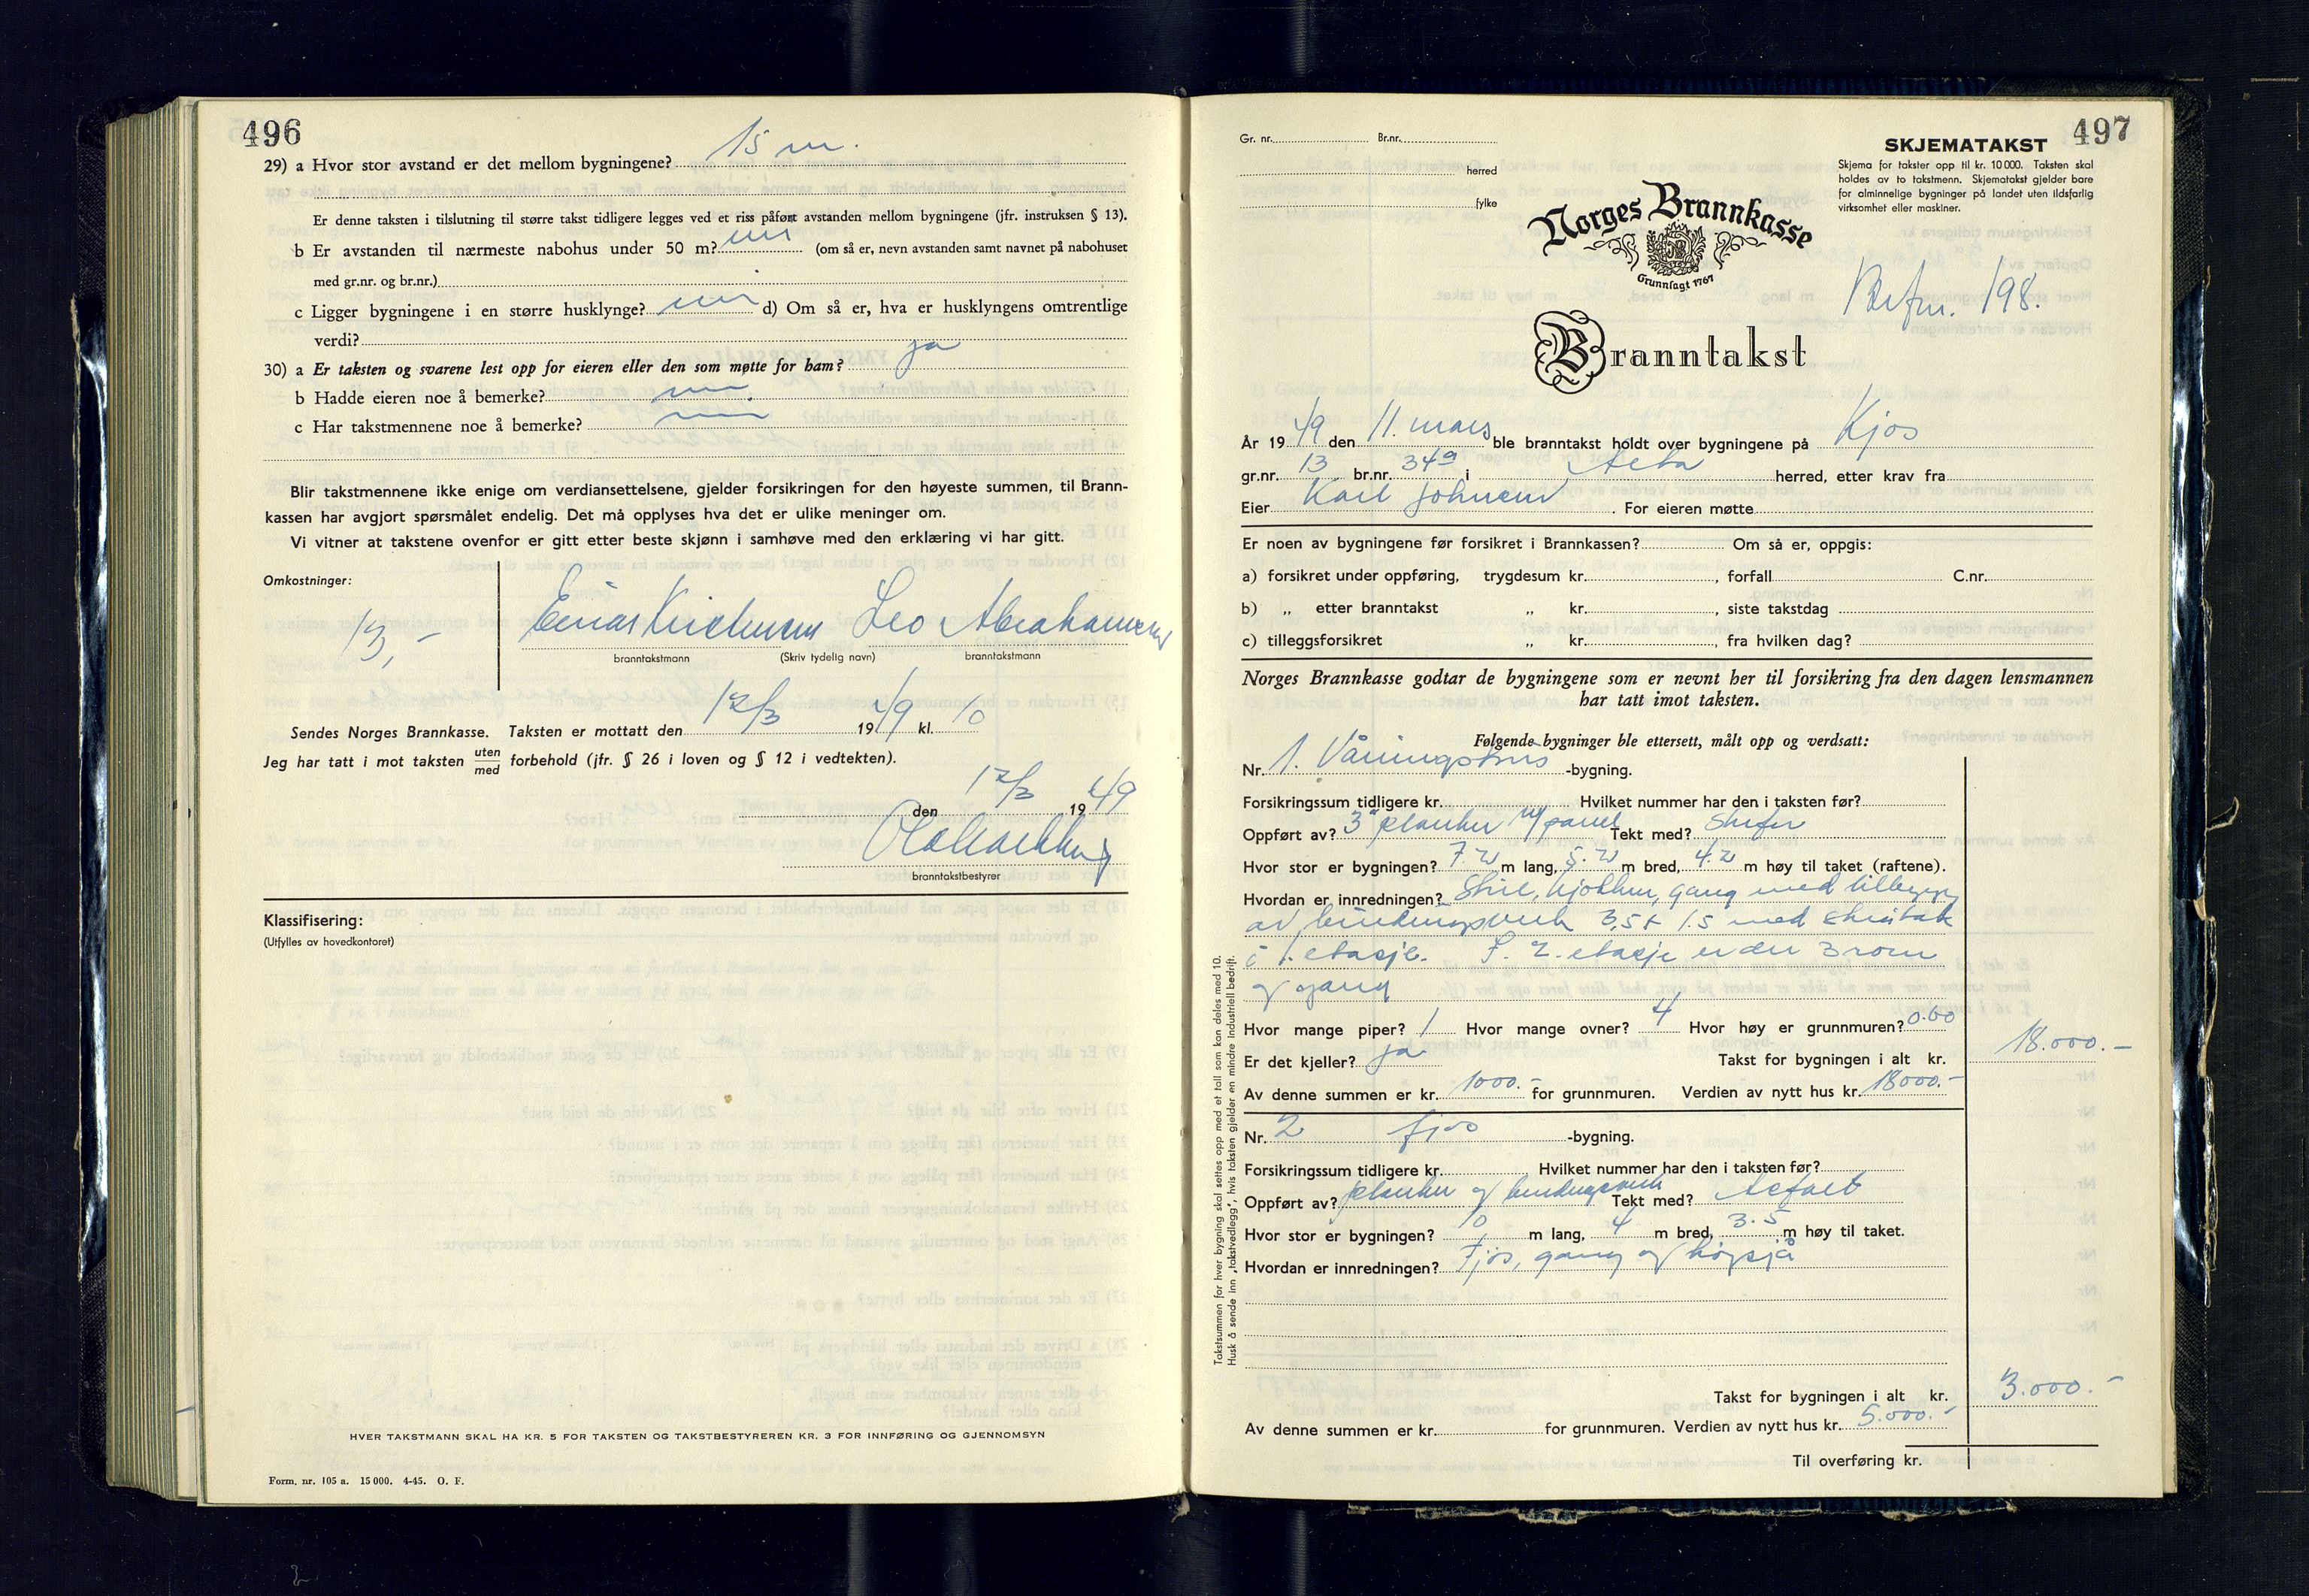 496
29) a Hvor stor avstand er det mellom bygningene? 15 m.
Er denne taksten i tilslutning til større takst tidligere legges ved et riss påført avstanden mellom bygningene (jfr. instruksen § 13).
b Er avstanden til nærmeste nabohus under 50 m? nei (om så er, nevn avstanden samt navnet på nabohuset
med gr.nr. og br.nr.)
c Ligger bygningene i en større husklynge? nei d) Om så er, hva er husklyngens omtrentlige
verdi?
30) a Er taksten og svarene lest opp for eieren eller den som møtte for ham? ja
b Hadde eieren noe å bemerke? nei.
c Har takstmennene noe å bemerke? nei
Blir takstmennene ikke enige om verdiansettelsene, gjelder forsikringen for den høyeste summen, til Brann-
kassen har avgjort spørsmålet endelig. Det må opplyses hva det er ulike meninger om.
Vi vitner at takstene ovenfor er gitt etter beste skjønn i samhøve med den erklæring vi har gitt.
Omkostninger:
13,-
Leo Abrahamsen
branntakstmann (Skriv tydelig navn) branntakstmann
Sendes Norges Brannkasse. Taksten er mottatt den 12/3 1949 kl. 10
Jeg har tatt i mot taksten uten/med forbehold (jfr. § 26 i loven og § 12 i vedtekten).
den 12/3 1949
branntakstbestyrer
Klassifisering:
(Utfylles av hovedkontoret)
HVER TAKSTMANN SKAL HA KR. 5 FOR TAKSTEN OG TAKSTBESTYREREN KR. 3 FOR INNFØRING OG GJENNOMSYN
Form. nr. 105 a. 15 000. 4-45. O. F.
497
Gr. nr. Br.nr.
herred
fylke
SKJEMATAKST
Skjema for takster opp til kr. 10 000. Taksten skal
holdes av to takstmenn. Skjematakst gjelder bare
for alminnelige bygninger på landet uten ildsfarlig
virksomhet eller maskiner.
Norges Brannkasse
Grunnlagt 1767
198.
Branntakst
År 1949 den 11. mars ble branntakst holdt over bygningene på Kjos
gr.nr. 13 br.nr. 349 i Alta herred, etter krav fra
Eier Karl Johnsen. For eieren møtte
Er noen av bygningene før forsikret i Brannkassen? Om så er, oppgis:
a) forsikret under oppføring, trygdesum kr. , forfall C.nr.
b) „ etter branntakst „ kr. , siste takstdag
c) tilleggsforsikret „ kr. , fra hvilken dag?
Norges Brannkasse godtar de bygningene som er nevnt her til forsikring fra den dagen lensmannen
har tatt imot taksten.
Følgende bygninger ble ettersett, målt opp og verdsatt:
Nr. 1. Våningshus -bygning.
Forsikringssum tidligere kr. Hvilket nummer har den i taksten før?
Oppført av? 3" planker m/panel Tekt med? Skifer
Hvor stor er bygningen? 7.20 m lang, 5.20 m bred, 4.20 m høy til taket (raftene).
Hvordan er innredningen? Stue, kjøkken, gang med tilbygg
av bindingsverk 3,5 x 1.5 med skråtak
i 1. etasje. I 2. etasje er der 3 rom
og gang
Hvor mange piper? 1 Hvor mange ovner? 4 Hvor høy er grunnmuren? 0.60
Er det kjeller? ja Takst for bygningen i alt kr. 18.000.-
Av denne summen er kr. 1000.- for grunnmuren. Verdien av nytt hus kr. 18000.-
Nr. 2 fjøs -bygning.
Forsikringssum tidligere kr. Hvilket nummer har den i taksten før?
Oppført av? planker og bindingsverk Tekt med? Asfalt
Hvor stor er bygningen? 10 m lang, 4 m bred, 3.5 m høy til taket.
Hvordan er innredningen? Fjøs, gang og høysjå
Takst for bygningen i alt kr. 3.000.-
Av denne summen er kr. for grunnmuren. Verdien av nytt hus kr. 5.000.-
Til overføring kr.
Takstsummen for hver bygning skal settes opp med et tall som kan deles med 10.
Husk å sende inn „takstvedlegg", hvis taksten gjelder en mindre industriell bedrift.